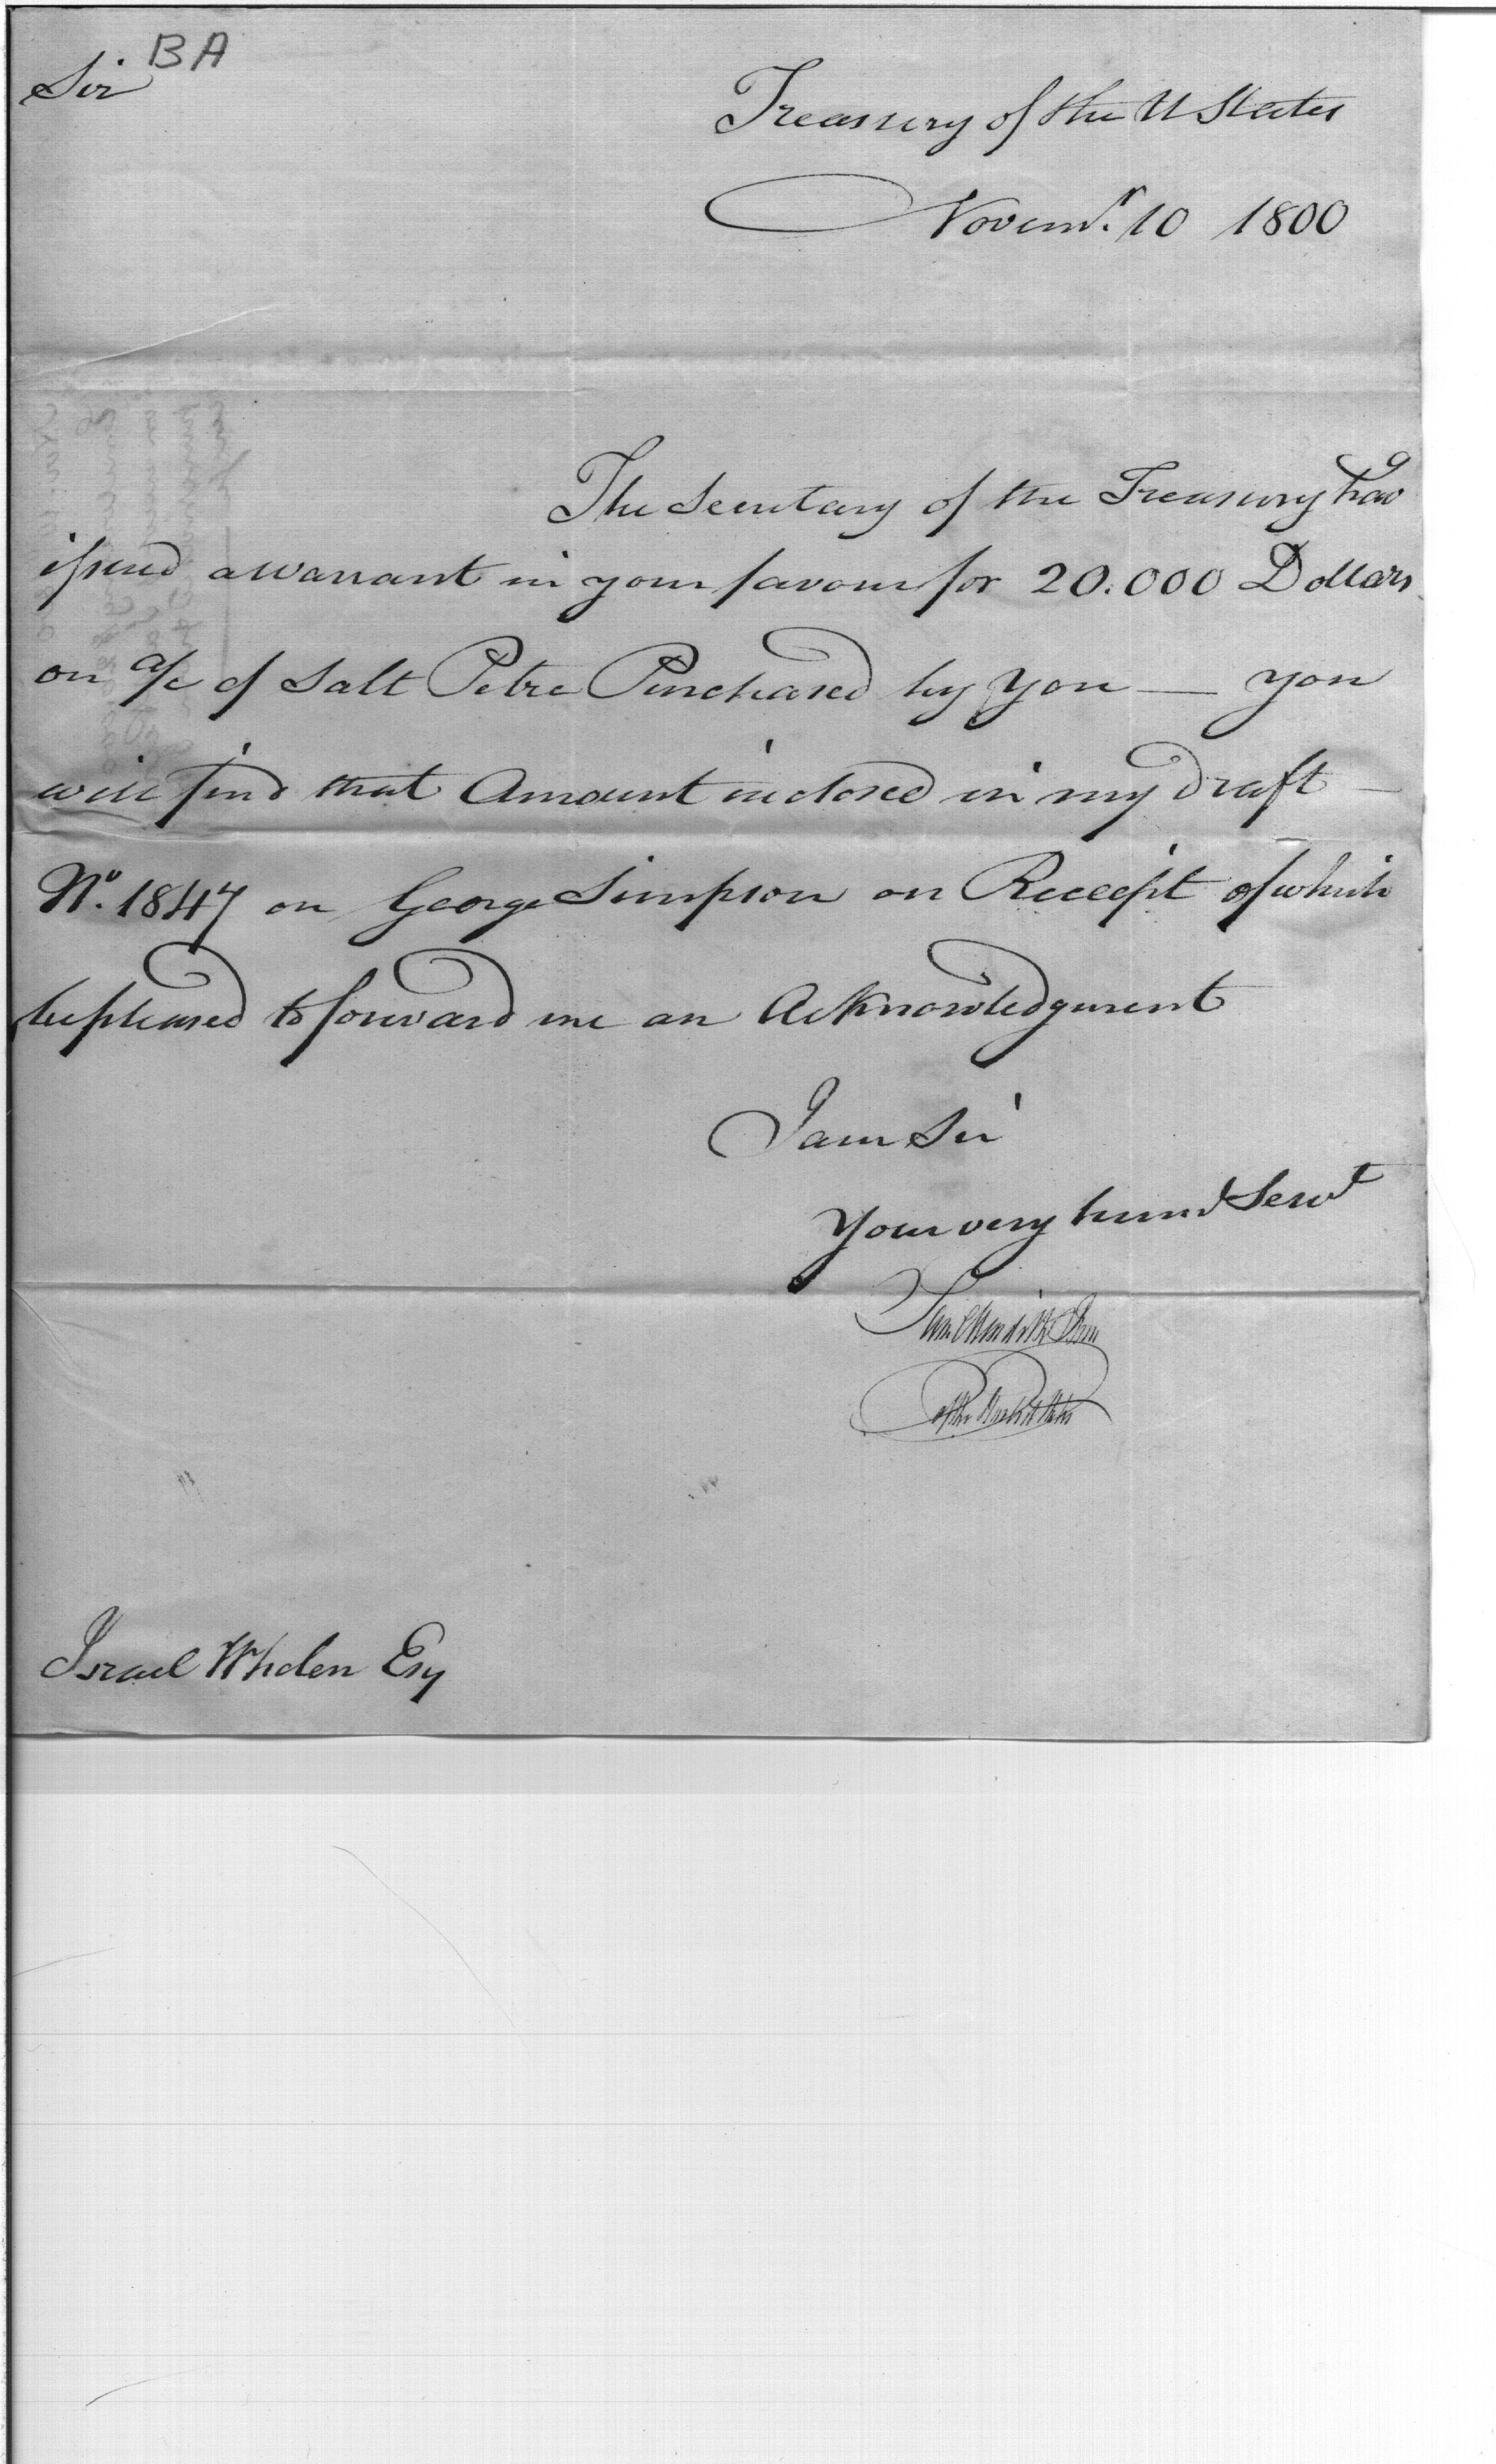 BA
Sir
Treasury of the U States
Novem.r 10 1800
The Secretary of the Treasury has
issued a Warrant in your favour for 20.000 Dollars
on a/c of Salt Petre Purchased by you — you
will find that Amount inclosed in my draft —
No. 1847 on George Simpson on Receipt of which
be pleased to forward me an Acknowledgment
I am Sir
Your very hum'l Serv't
Sam Meredith Treas
of the United States
Israel Whelen Esq